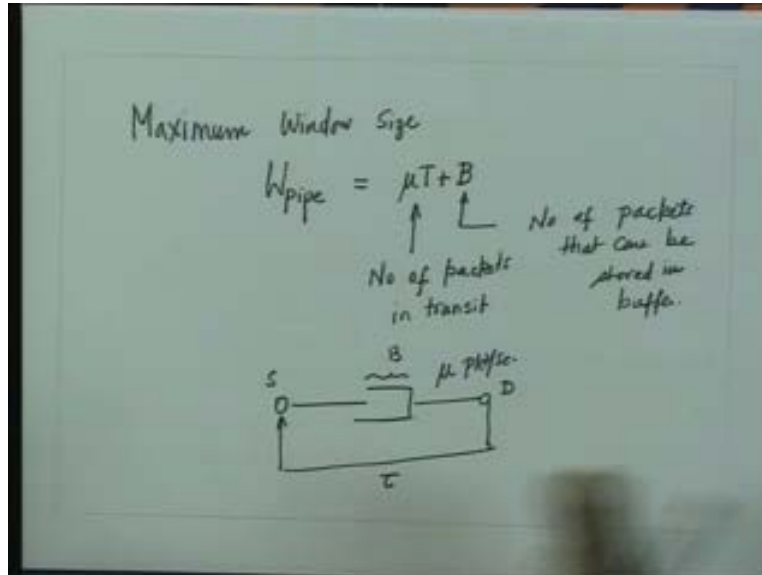 Maximum Window Size
Wpipe = μT + B
No of packets
in transit
No of packets
that can be
stored in
buffer.
B
μ pkt/sc.
S
D
τ